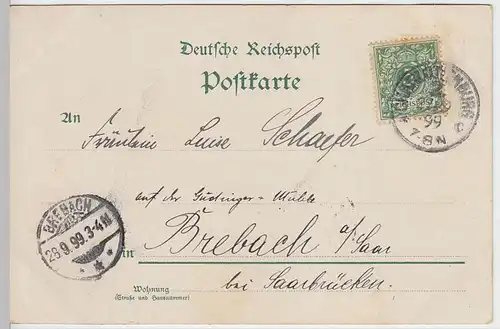 Deutsche Reichspost
Postkarte
An
Fräulein Luise Schaefer
auf der Güdinger-Mühle
in Brebach a/Saar
bei Saarbrücken.
Wohnung
(Straße und Hausnummer)
BREBACH
28.9.99.3-4N
99
7-8N